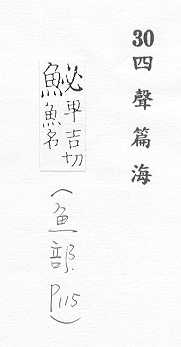 30 四聲篇海
鮅 卑吉切
魚名
(魚部 P115)